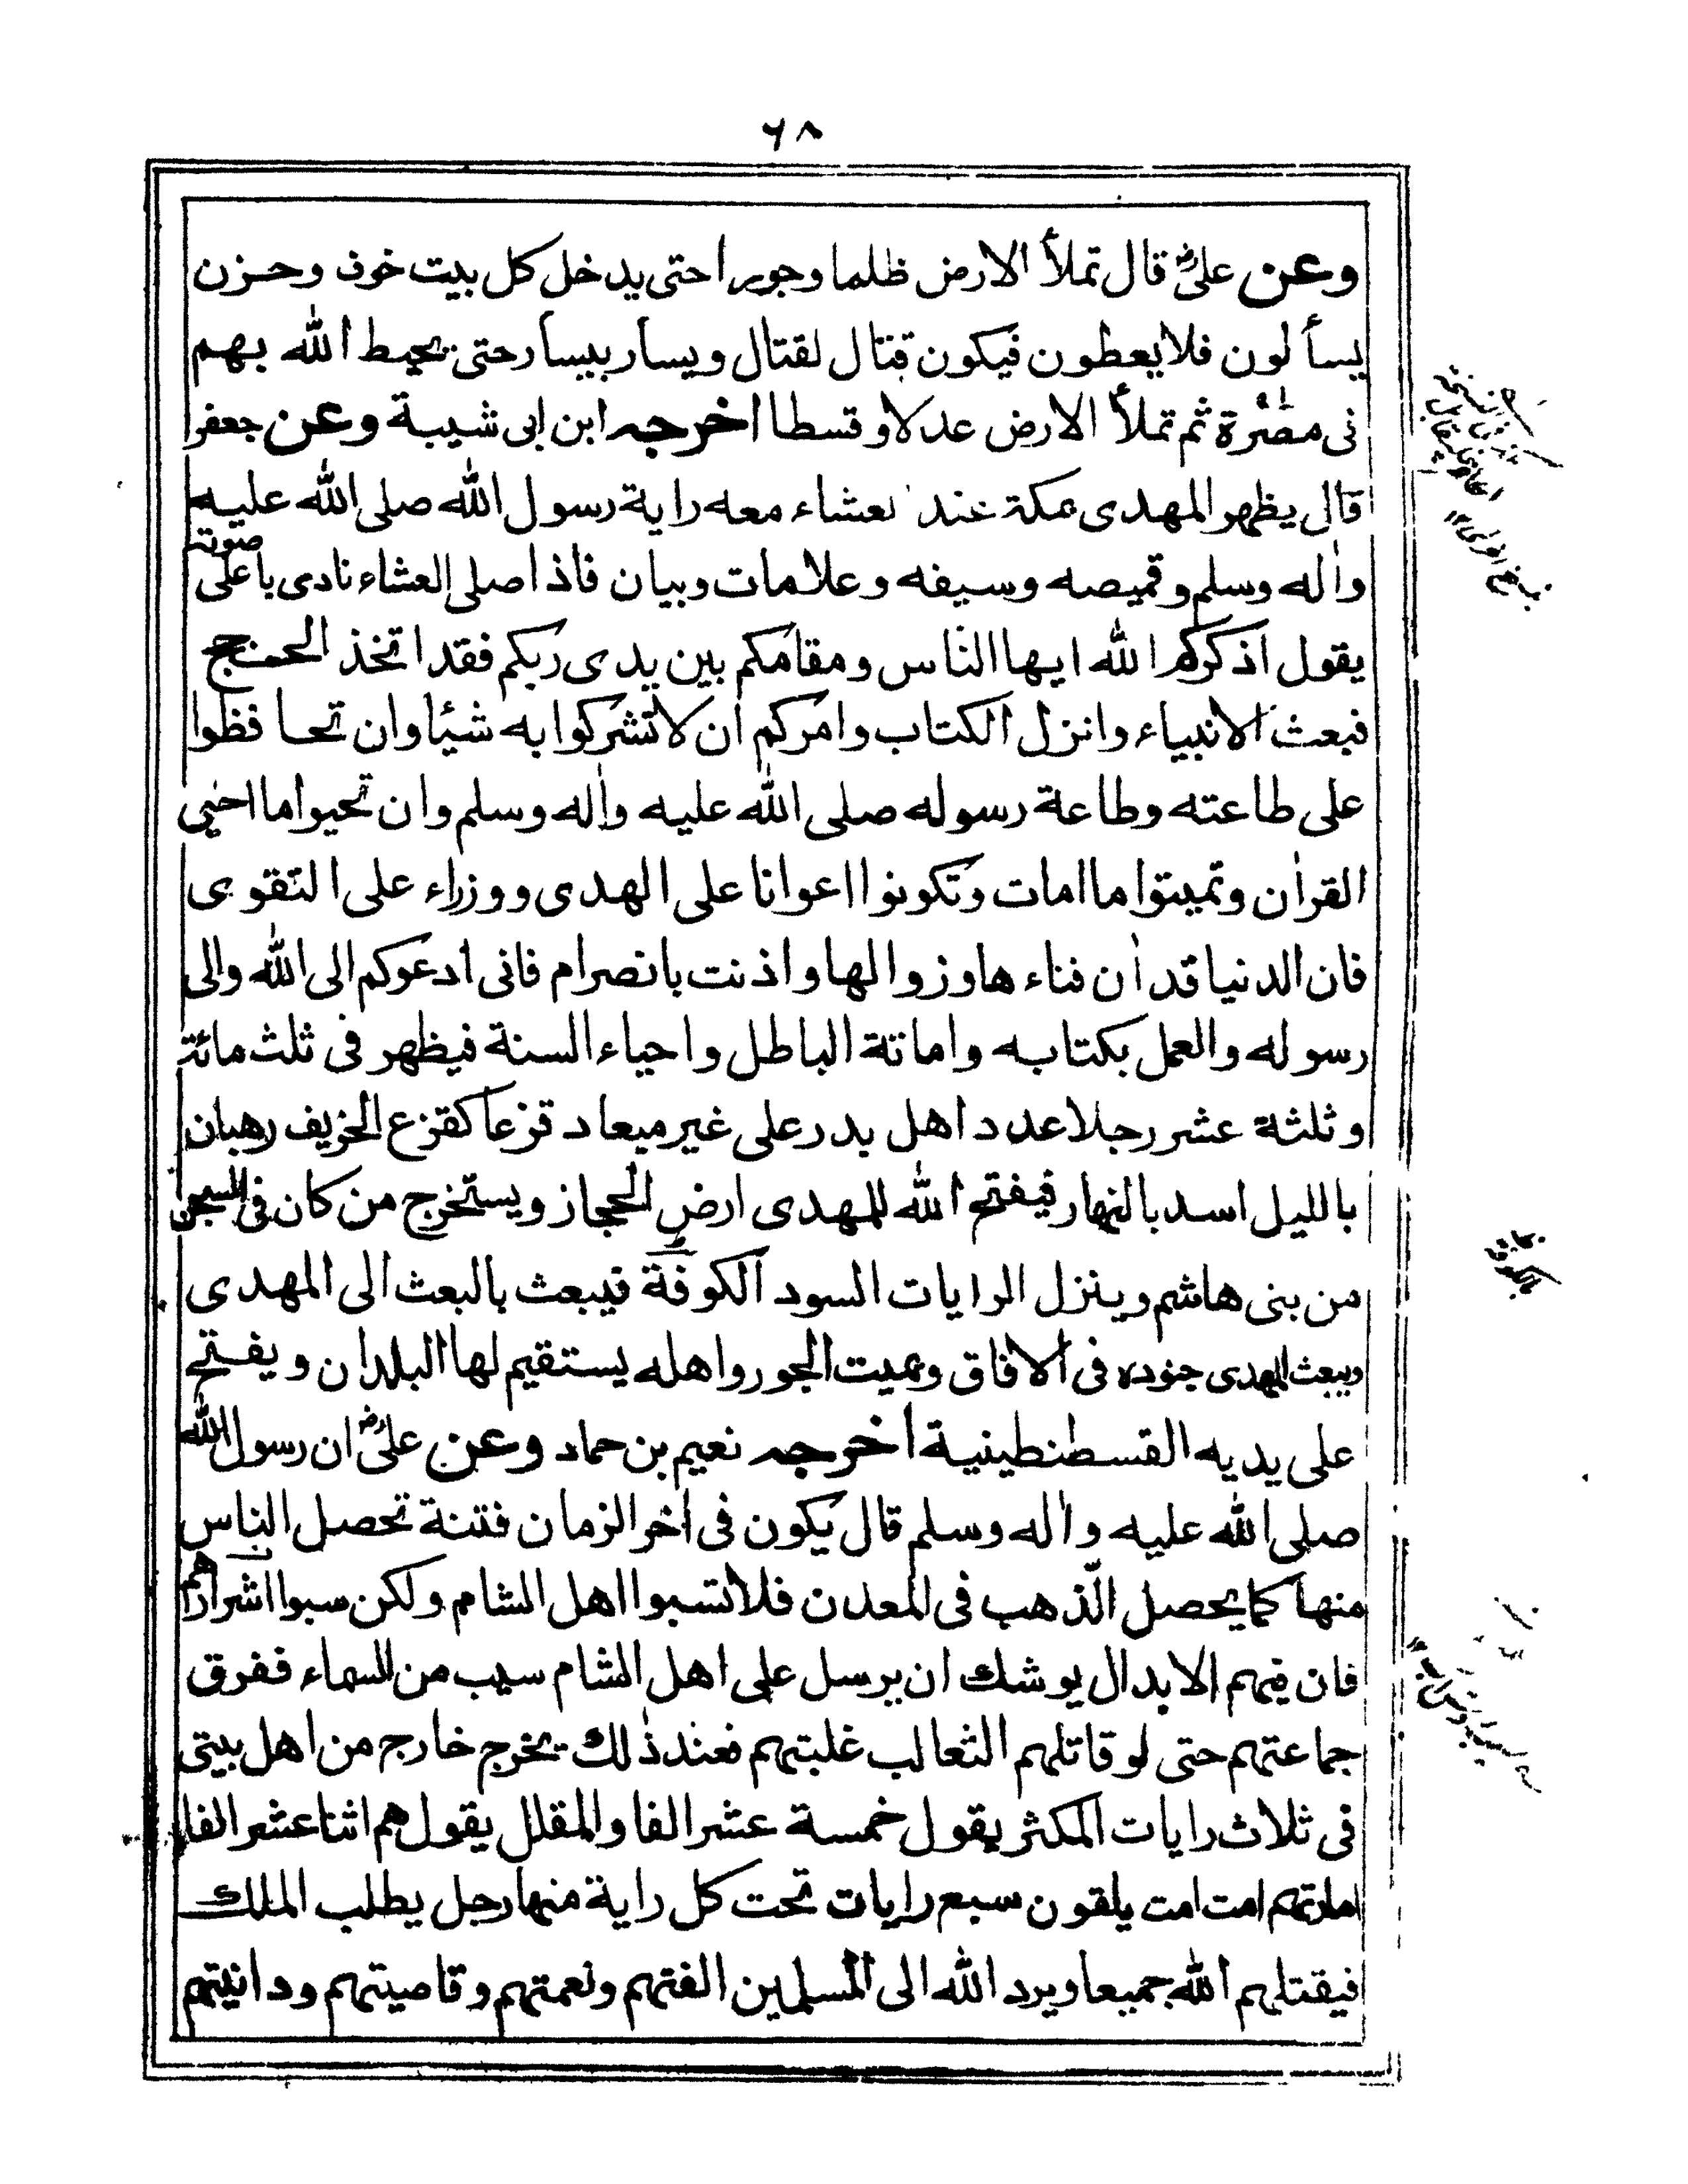 ٦٨
وعن علیؓ قال تملأ الارض ظلما وجورا حتی یدخل کل بیت خوف وحزن
یسألون فلا یعطون فیکون قتال لقتال ویسار بیسار حتی یحیط الله بهم
فی مصره ثم تملأ الارض عدلا وقسطا اخرجه ابن ابی شیبة وعن جعفر
قال یظهر المهدی بمکة عند العشاء معه رایة رسول الله صلی الله علیه
واٰله وسلم وقمیصه وسیفه وعلامات وبیان فاذا صلی العشاء نادی باعلی صوته
یقول اذکرکم الله ایها الناس ومقامکم بین یدی ربکم فقد اتخذ الحجج
فبعث الانبیاء وانزل الکتاب وامرکم ان لا تشرکوا به شیئا وان تحافظوا
علی طاعته وطاعة رسوله صلی الله علیه واٰله وسلم وان تحیوا ما احیی
القراٰن وتمیتوا ما امات وتکونوا اعوانا علی الهدی ووزراء علی التقوی
فان الدنیا قد اٰن فناءها وزوالها واذنت بانصرام فانی ادعوکم الی الله والی
رسوله والعمل بکتابه واماتة الباطل واحیاء السنة فیظهر فی ثلث مائة
وثلثة عشر رجلا عدد اهل بدر علی غیر میعاد قزعا کقزع الخریف رهبان
باللیل اسد بالنهار فیفتح الله للمهدی ارض الحجاز ویستخرج من کان فی السجن
من بنی هاشم وینزل الرایات السود الکوفة فیبعث بالبعث الی المهدی
ویبعث المهدی جنوده فی الافاق ویمیت الجور واهله یستقیم لها البلدان ویفتح
علی یدیه القسطنطینیة اخرجه نعیم بن حماد وعن علیؓ ان رسول الله
صلی الله علیه واٰله وسلم قال یکون فی اٰخر الزمان فتنة تحصل الناس
منها کما یحصل الذهب فی المعدن فلا تسبوا اهل الشام ولکن سبوا اشرارهم
فان فیهم الابدال یوشک ان یرسل علی اهل الشام سیب من السماء ففرق
جماعتهم حتی لو قاتلهم الثعالب غلبتهم فعند ذٰلک یخرج خارج من اهل بیتی
فی ثلاث رایات المکثر یقول خمسة عشر الفا والمقلل یقول هم اثنا عشر الفا
امارتهم امت امت یلقون سبع رایات تحت کل رایة منها رجل یطلب الملک
فیقتلهم الله جمیعا ویرد الله الی المسلمین الفتهم ونعمتهم وقاصیتهم ودانیتهم